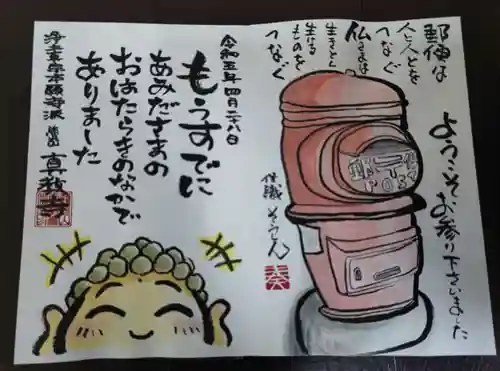 ようこそお参り下さいました
郵便は
人と人とを
つなぐ
仏さまは
生きとし
生ける
ものを
つなぐ
住職
郵便
POST
令和五年四月二十八日
もうすでに
あみださまの
おはたらきのなかで
ありました
浄土真宗本願寺派
真教寺